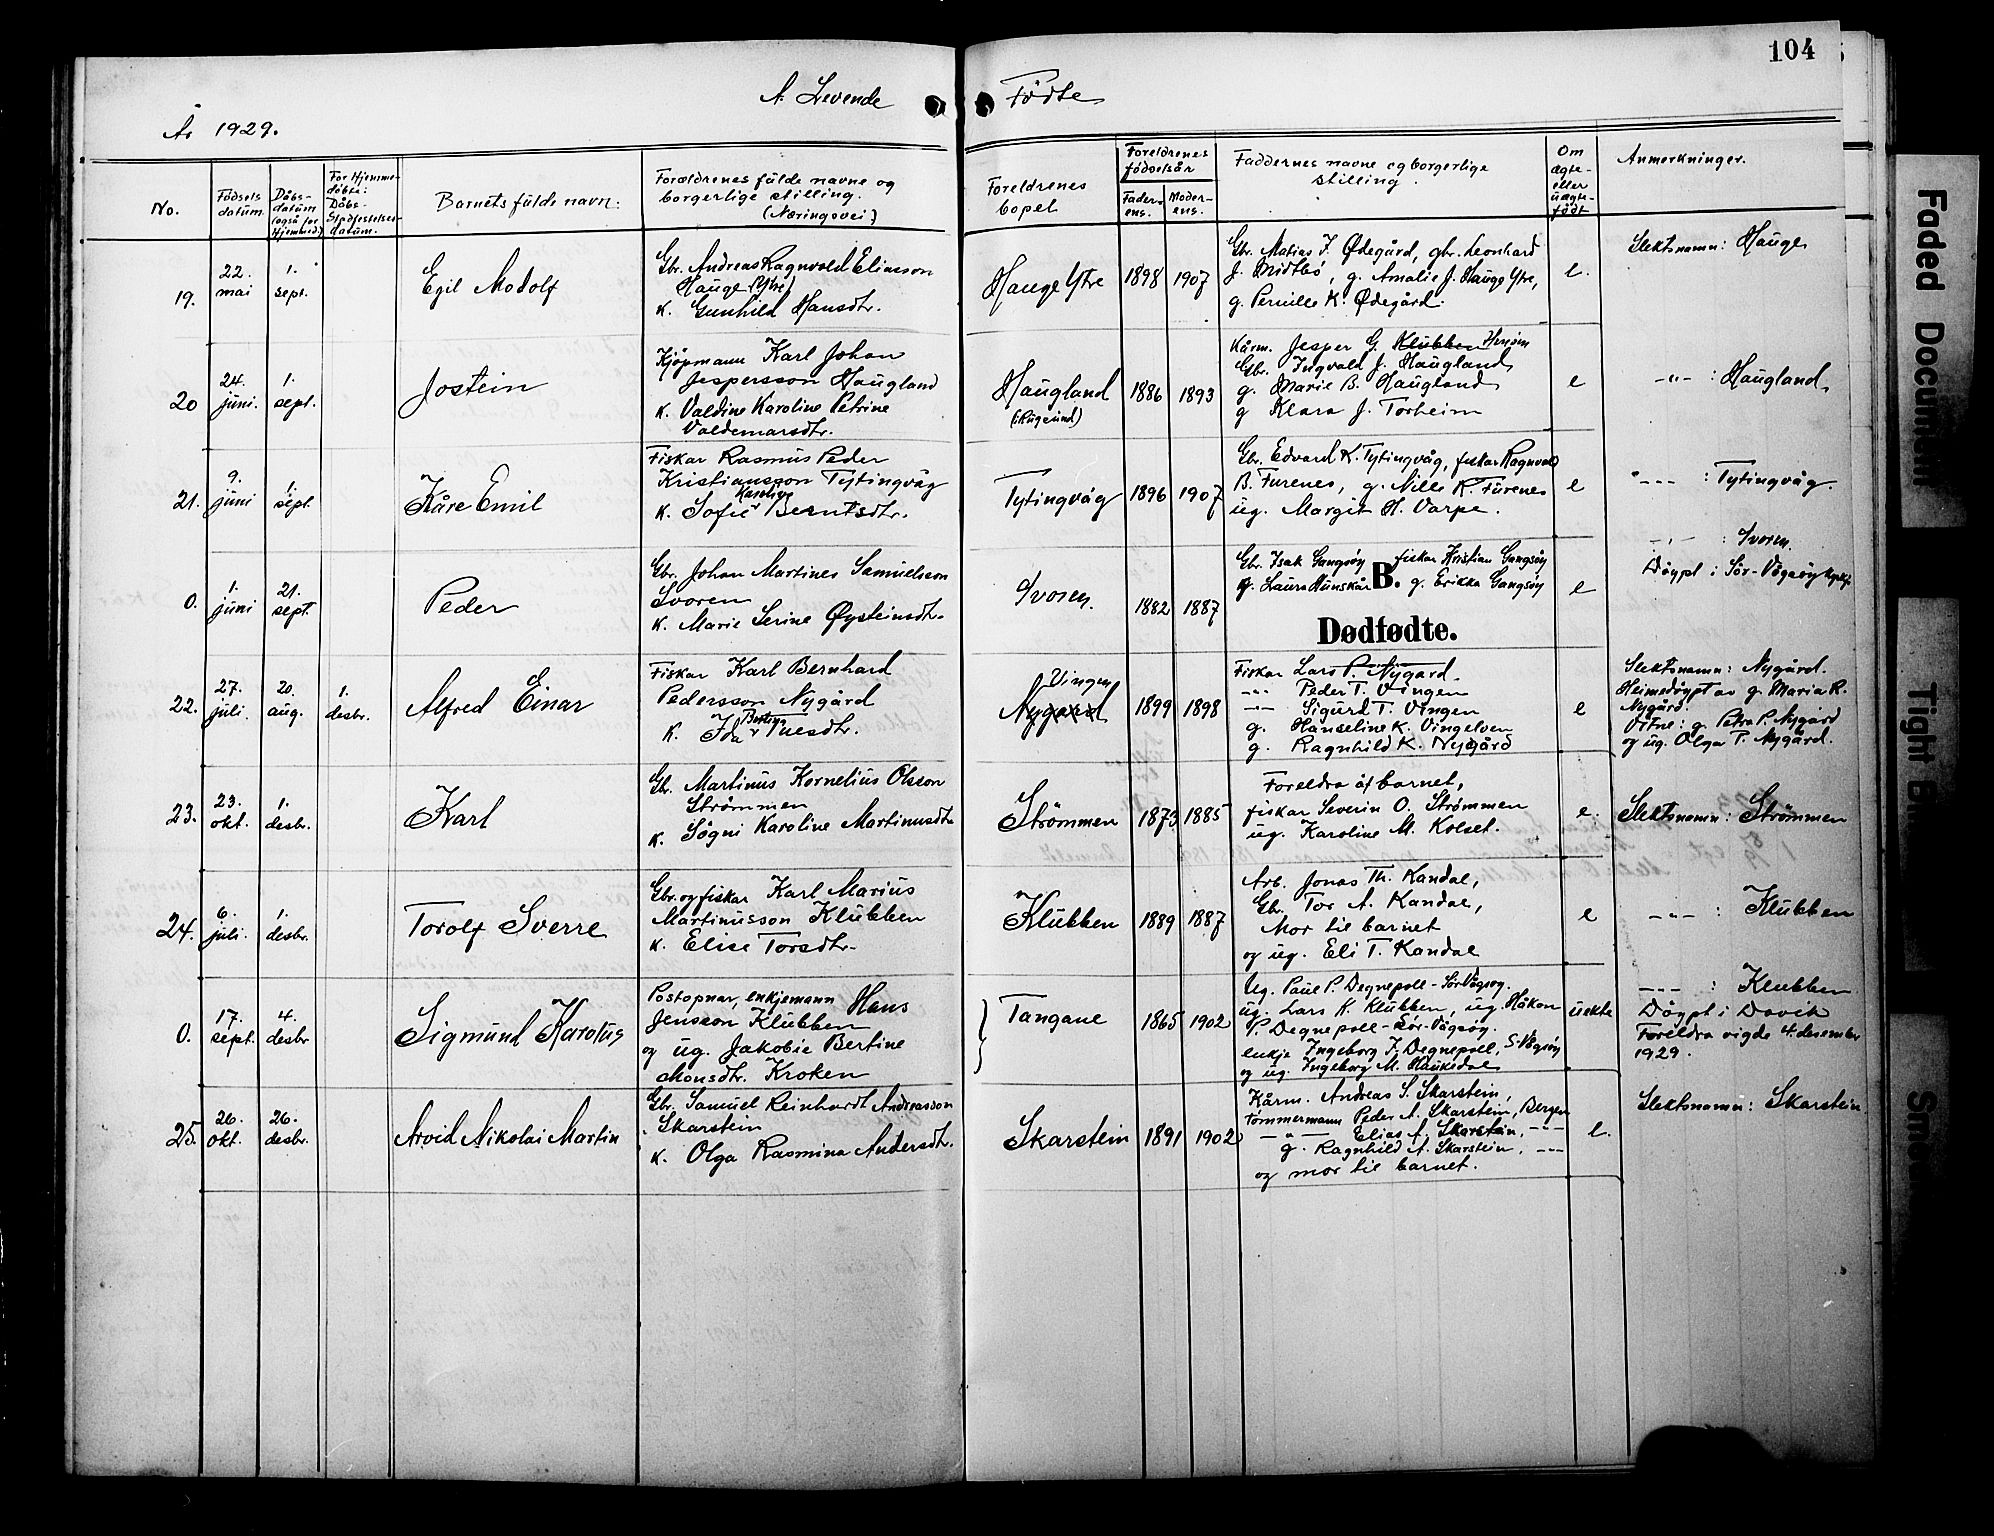 104
A. Levende Fødte
År 1929.
No.
Fødsels datum.
Dåbs-datum (også for Hjemmed.)
For Hjemme-døbte: Dåbs-Stadfestelses-datum.
Barnets fulde navn:
Forældrenes fulde navne og
borgerlige stilling.
(Næringsvei)
Foreldrenes
bopel
Foreldrenes
fødselsår
Fader-ens.
Moder-ens.
Faddernes navne og borgerlige
stilling.
Om
ægte-
eller
uægte-
født
Anmerkninger.
19.
22. mai
1. sept.
Egil Modolf
Gbr. Andreas Ragnvald Eliasson
Hauge (Ytre)
K. Gunhild Hansdtr.
Hauge Ytre
1898
1907
Gbr. Matias J. Ødegård, gbr. Leonhard
J. Midtbö, g. Amalie J. Hauge Ytre,
g. Pernille K. Ødegård.
e.
Slektsnamn: Hauge
20
24. juni.
1. sept.
Jostein
Kjöpmann Karl Johan
Jespersson Haugland
K. Valdine Karoline Petrine
Valdemarsdtr.
Haugland
(i Rugsund)
1886
1893
Kårm. Jesper G. Klubben
Gbr. Ingvald J. Haugland,
g. Marie B. Haugland
g Klara J. Torheim
e
-"- : Haugland
21.
9. juni
1. sept.
Kåre Emil
Fiskar Rasmus Peder
Kristiansson Tytingvåg
Karoline
K. Sofie Berntsdtr.
Tytingvåg
1896
1907
Gbr. Edvard K. Tytingvåg, fiskar Ragnvald
B. Furenes, g. Nille K. Furenes
ug. Margit H. Varpe.
e
-"- : Tytingvåg.
0.
1. juni
21. sept.
Peder
Gbr. Johan Martines Samuelsson
Svoren
K. Marie Serine Øysteinsdtr.
Svoren
1882
1887
Gbr. Isak Gangsöy fiskar Kristian Gangsöy
g. Laura Hunskår g. Erikka Gangsöy
B.
Dødfødte.
e
-"- : Svoren
Döypt i Sör-Vågsöy
22.
27. juli.
20. aug.
1. desbr.
Alfred Einar
Fiskar Karl Bernhard
Pedersson Nygård
Bertine
K. Ida Tuesdtr.
Vingen
Nygård
1899
1898
Fiskar Lars P. Nygard.
-"- Peder T. Vingen
-"- Sigurd T. Vingen
g. Hanseline K. Vingelven
g. Ragnhild K. Nygård
e
Slektsnamn: Nygård.
Heimedöypt av g. Maria R.
Nygård.
Vitne: g. Petra P. Nygård
og ug. Olga P. Nygård.
23.
23. okt.
1. desbr.
Karl
Gbr. Martinus Kornelius Olsson
Strömmen
K. Sögni Karoline Martinusdtr
Strömmen
1873
1885
Foreldra åt barnet,
fiskar Severin O. Strömmen
ug. Karoline M. Kolset.
e.
Slektsnamn: Strömmen
24.
6. juli.
1. desbr.
Torolf Sverre
Gbr. og fiskar Karl Marius
Martinusson Klubben
K. Elise Torsdtr.
Klubben
1889
1887
Arb. Jonas Th. Kandal,
Gbr. Tor A. Kandal,
Mor til barnet
og ug. Eli T. Kandal
e
-"- : Klubben
0.
17. sept.
4. desbr
Sigmund Karolus
Postopnar, enkjemann Hans
Jensson Klubben
og ug. Jakobie Bertine
Monsdtr. Kroken
Tangane
1865
1902
Ug. Paul P. Degnepoll - Sör-Vågsöy.
ug. Lars K. Klubben, ug. Håkon
P. Degnepoll - Sör-Vågsöy.
enkje Ingeborg J. Degnepoll, S-Vågsöy
og ug. Ingeborg M. Haukedal
uekte
-"- : Klubben
Döypt i Davik
Foreldra vigde 4. desember
1929.
25.
26. okt.
26. desbr.
Arvid Nikolai Martin
Gbr. Samuel Reinhardt Andreasson
Skarstein
K. Olga Rasmina Andersdtr.
Skarstein
1891
1902
Kårm. Andreas S. Skarstein,
Tømmermann Peder A. Skarstein, Bergen
-"- Elias A. Skarstein, -"-
g. Ragnhild A. Skarstein, -"-
og mor til barnet.
e.
Slektsnamn: Skarstein
Faded Document